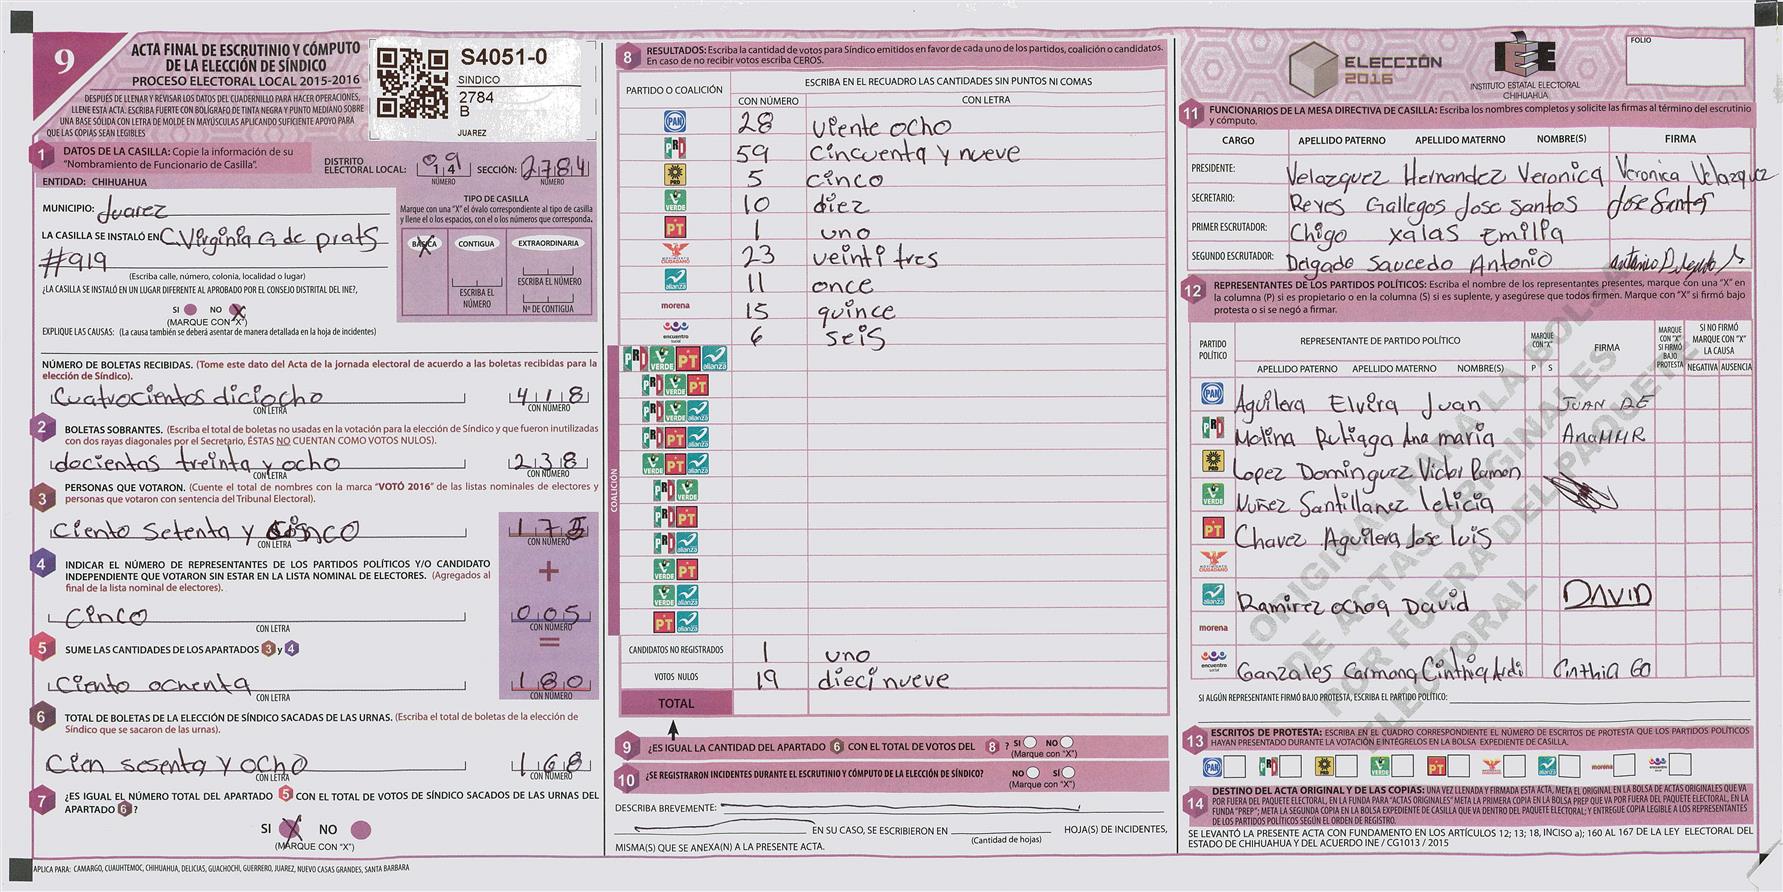 9
ACTA FINAL DE ESCRUTINIO Y CÓMPUTO
DE LA ELECCIÓN DE SÍNDICO
PROCESO ELECTORAL LOCAL 2015-2016
DESPUÉS DE LLENAR Y REVISAR LOS DATOS DEL CUADERNILLO PARA HACER OPERACIONES,
LLENE ESTA ACTA. ESCRIBA FUERTE CON BOLÍGRAFO DE TINTA NEGRA Y PUNTO MEDIANO SOBRE
UNA BASE SÓLIDA CON LETRA DE MOLDE EN MAYÚSCULAS APLICANDO SUFICIENTE APOYO PARA
QUE LAS COPIAS SEAN LEGIBLES
S4051-0
SINDICO
2784
B
JUAREZ
1 DATOS DE LA CASILLA: Copie la información de su
"Nombramiento de Funcionario de Casilla".
DISTRITO
ELECTORAL LOCAL: 09 14 SECCIÓN: 2784
NÚMERO NÚMERO
ENTIDAD: CHIHUAHUA
MUNICIPIO: Juarez
LA CASILLA SE INSTALÓ EN C.Virginia G de prats
#919
(Escriba calle, número, colonia, localidad o lugar)
¿LA CASILLA SE INSTALÓ EN UN LUGAR DIFERENTE AL APROBADO POR EL CONSEJO DISTRITAL DEL INE?,
SI NO X
(MARQUE CON "X")
EXPLIQUE LAS CAUSAS: (La causa también se deberá asentar de manera detallada en la hoja de incidentes)
TIPO DE CASILLA
Marque con una "X" el óvalo correspondiente al tipo de casilla
y llene el o los espacios, con el o los números que corresponda.
BÁSICA X CONTIGUA EXTRAORDINARIA
ESCRIBA EL NÚMERO
ESCRIBA EL NÚMERO
Nº DE CONTIGUA
NÚMERO DE BOLETAS RECIBIDAS. (Tome este dato del Acta de la jornada electoral de acuerdo a las boletas recibidas para la
elección de Síndico).
Cuatrocientos diciocho 418
CON LETRA CON NÚMERO
2 BOLETAS SOBRANTES. (Escriba el total de boletas no usadas en la votación para la elección de Síndico y que fueron inutilizadas
con dos rayas diagonales por el Secretario, ÉSTAS NO CUENTAN COMO VOTOS NULOS).
docientas treinta y ocho 238
CON LETRA CON NÚMERO
3 PERSONAS QUE VOTARON. (Cuente el total de nombres con la marca "VOTÓ 2016" de las listas nominales de electores y
personas que votaron con sentencia del Tribunal Electoral).
Ciento setenta y cinco 175
CON LETRA CON NÚMERO
4 INDICAR EL NÚMERO DE REPRESENTANTES DE LOS PARTIDOS POLÍTICOS Y/O CANDIDATO
INDEPENDIENTE QUE VOTARON SIN ESTAR EN LA LISTA NOMINAL DE ELECTORES. (Agregados al
final de la lista nominal de electores).
+
Cinco 005
CON LETRA CON NÚMERO
=
5 SUME LAS CANTIDADES DE LOS APARTADOS 3 y 4
Ciento ochenta 180
CON LETRA CON NÚMERO
6 TOTAL DE BOLETAS DE LA ELECCIÓN DE SÍNDICO SACADAS DE LAS URNAS. (Escriba el total de boletas de la elección de
Síndico que se sacaron de las urnas).
Cien sesenta y ocho 168
CON LETRA CON NÚMERO
7 ¿ES IGUAL EL NÚMERO TOTAL DEL APARTADO 5 CON EL TOTAL DE VOTOS DE SÍNDICO SACADOS DE LAS URNAS DEL
APARTADO 6?
SI X NO
(MARQUE CON "X")
APLICA PARA: CAMARGO, CUAUHTEMOC, CHIHUAHUA, DELICIAS, GUACHOCHI, GUERRERO, JUAREZ, NUEVO CASAS GRANDES, SANTA BARBARA
8 RESULTADOS: Escriba la cantidad de votos para Síndico emitidos en favor de cada uno de los partidos, coalición o candidatos.
En caso de no recibir votos escriba CEROS.
PARTIDO O COALICIÓN
ESCRIBA EN EL RECUADRO LAS CANTIDADES SIN PUNTOS NI COMAS
CON NÚMERO CON LETRA
PAN 28 viente ocho
PRI 59 cincuenta y nueve
PRD 5 cinco
VERDE 10 diez
PT 1 uno
MOVIMIENTO CIUDADANO 23 veinti tres
alianza 11 once
morena 15 quince
encuentro social 6 seis
COALICIÓN
PRI VERDE PT alianza
PRI VERDE PT
PRI VERDE alianza
PRI PT alianza
VERDE PT alianza
PRI VERDE
PRI PT
PRI alianza
VERDE PT
VERDE alianza
PT alianza
CANDIDATOS NO REGISTRADOS 1 uno
VOTOS NULOS 19 dieci nueve
TOTAL
9 ¿ES IGUAL LA CANTIDAD DEL APARTADO 6 CON EL TOTAL DE VOTOS DEL 8 ? SI NO
(Marque con "X")
10 ¿SE REGISTRARON INCIDENTES DURANTE EL ESCRUTINIO Y CÓMPUTO DE LA ELECCIÓN DE SÍNDICO? NO SÍ
(Marque con "X")
DESCRIBA BREVEMENTE:
EN SU CASO, SE ESCRIBIERON EN HOJA(S) DE INCIDENTES,
(Cantidad de hojas)
MISMA(S) QUE SE ANEXA(N) A LA PRESENTE ACTA.
ELECCIÓN
2016
IEE
INSTITUTO ESTATAL ELECTORAL
CHIHUAHUA
FOLIO
11 FUNCIONARIOS DE LA MESA DIRECTIVA DE CASILLA: Escriba los nombres completos y solicite las firmas al término del escrutinio
y cómputo.
CARGO APELLIDO PATERNO APELLIDO MATERNO NOMBRE(S) FIRMA
PRESIDENTE: Velazquez Hernandez Veronica Veronica Velazquez
SECRETARIO: Reyes Gallegos Jose Santos Jose Santos
PRIMER ESCRUTADOR: Chigo Xalas Emilia
SEGUNDO ESCRUTADOR: Delgado Saucedo Antonio Antonio Delgado S
12 REPRESENTANTES DE LOS PARTIDOS POLÍTICOS: Escriba el nombre de los representantes presentes, marque con una "X" en
la columna (P) si es propietario o en la columna (S) si es suplente, y asegúrese que todos firmen. Marque con "X" si firmó bajo
protesta o si se negó a firmar.
PARTIDO POLÍTICO
REPRESENTANTE DE PARTIDO POLÍTICO
APELLIDO PATERNO APELLIDO MATERNO NOMBRE(S)
MARQUE CON "X"
P S
FIRMA
MARQUE CON "X" SI FIRMÓ BAJO PROTESTA
SI NO FIRMÓ MARQUE CON "X" LA CAUSA
NEGATIVA AUSENCIA
PAN Aguilera Elvira Juan JUAN AE
PRI Molina Ana maria AnaMMR
PRD Lopez Dominguez Victor Ramon
VERDE Nuñez Santillanez leticia
PT Chavez Aguilera Jose luis
MOVIMIENTO CIUDADANO
alianza Ramirez ochoa David DAVID
morena
encuentro social Ganzales Carmona Cinthia Cinthia GO
ORIGINAL PARA LA BOLSA
DE ACTAS ORIGINALES
POR FUERA DEL PAQUETE
ELECTORAL
SI ALGÚN REPRESENTANTE FIRMÓ BAJO PROTESTA, ESCRIBA EL PARTIDO POLÍTICO:
13 ESCRITOS DE PROTESTA: ESCRIBA EN EL CUADRO CORRESPONDIENTE EL NÚMERO DE ESCRITOS DE PROTESTA QUE LOS PARTIDOS POLÍTICOS
HAYAN PRESENTADO DURANTE LA VOTACIÓN E INTÉGRELOS EN LA BOLSA EXPEDIENTE DE CASILLA.
PAN PRI PRD VERDE PT alianza morena encuentro social
14 DESTINO DEL ACTA ORIGINAL Y DE LAS COPIAS: UNA VEZ LLENADA Y FIRMADA ESTA ACTA, META EL ORIGINAL EN LA BOLSA DE ACTAS ORIGINALES QUE VA
POR FUERA DEL PAQUETE ELECTORAL, EN LA FUNDA PARA "ACTAS ORIGINALES" META LA PRIMERA COPIA EN LA BOLSA PREP QUE VA POR FUERA DEL PAQUETE ELECTORAL, EN LA
FUNDA "PREP"; META LA SEGUNDA COPIA EN LA BOLSA EXPEDIENTE DE CASILLA QUE VA DENTRO DEL PAQUETE ELECTORAL; Y ENTREGUE COPIA LEGIBLE A LOS REPRESENTANTES
DE LOS PARTIDOS POLÍTICOS SEGÚN EL ORDEN DE REGISTRO.
SE LEVANTÓ LA PRESENTE ACTA CON FUNDAMENTO EN LOS ARTÍCULOS 12; 13; 18, INCISO a); 160 AL 167 DE LA LEY ELECTORAL DEL
ESTADO DE CHIHUAHUA Y DEL ACUERDO INE / CG1013 / 2015